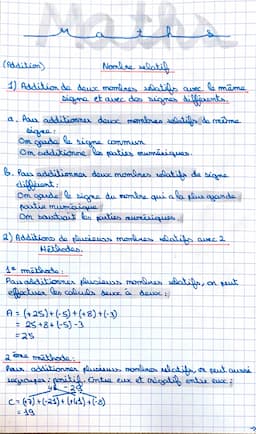 Maths
(Addition)
Nombre relatif
1) Addition de deux nombres relatifs avec le même
signe et avec des signes différents.
a. Pour additionner deux nombres relatifs de même
signe :
On garde le signe commun
On additionne les parties numériques.
b. Pour additionner deux nombres relatifs de signe
différent :
On garde le signe du nombre qui a la plus grande
partie numérique
On soustrait les parties numériques.
2) Additions de plusieurs nombres relatifs avec 2
Méthodes.
1º méthode :
Pour additionner plusieurs nombres relatifs, on peut
effectuer les calculs deux à deux :
A = (+25)+(-5)+(+8)+(-3)
= 25+8+(-5)-3
= 25
2ème méthode :
Pour additionner plusieurs nombres relatifs, on peut aussi
regrouper : positif entre eux et négatif entre eux :
48 - 29
C = (+7)+(-21)+(+41)+(-8)
= 19